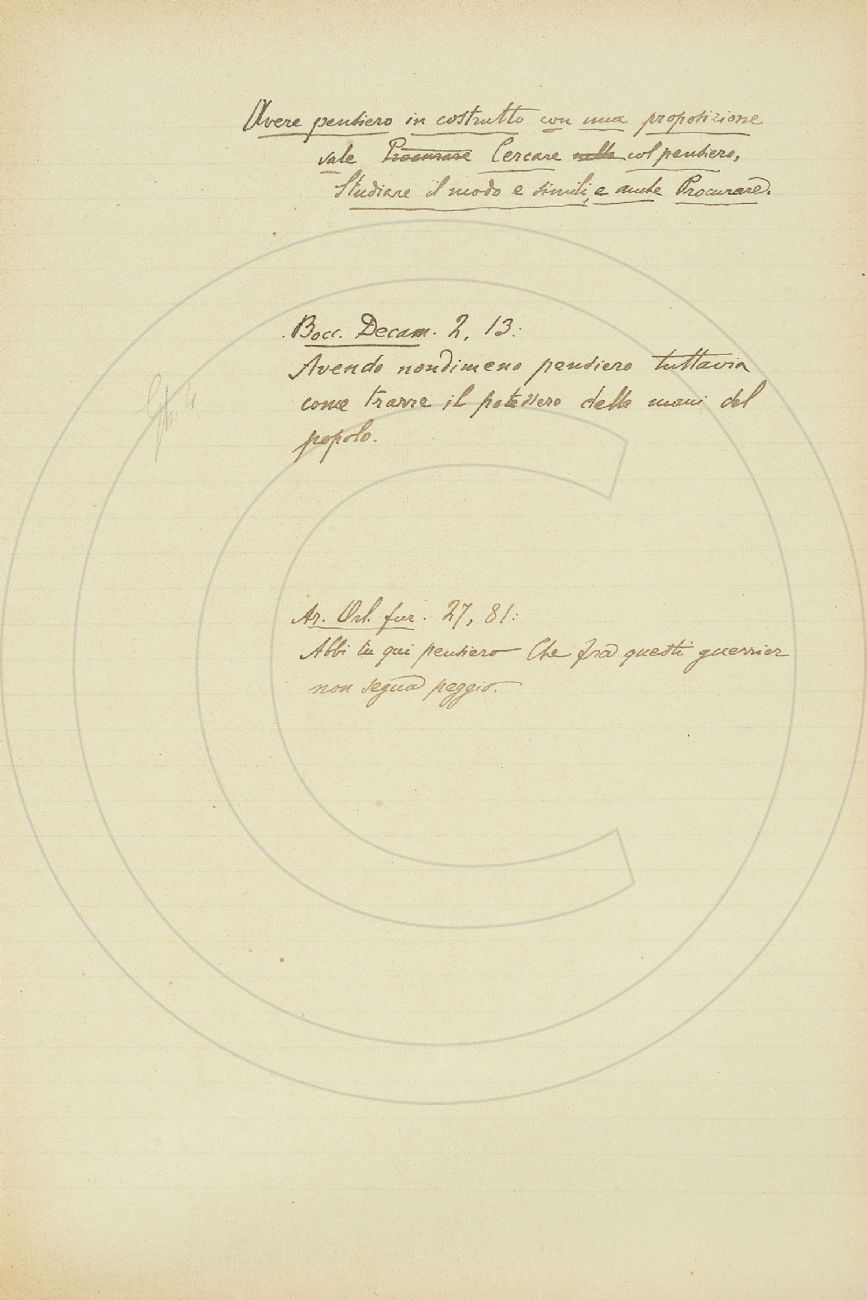 Avere pensiero in costrutto con una proposizione
vale Procurare Cercare nella col pensiero,
Studiare il modo e simili, e anche Procurare.
Bocc. Decam. 2, 13:
Avendo nondimeno pensiero tuttavia
come trarre il potessero delle mani del
popolo.
Ar. Orl. fur. 27, 81:
Abbi tu qui pensiero Che fra questi guerrier
non segua peggio.